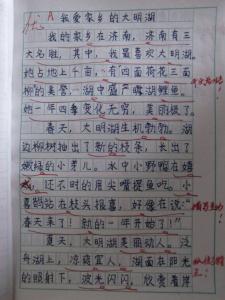 优 A 我爱家乡的大明湖
我的家乡在济南，济南有三
大名胜，其中，我最喜欢大明湖。
她占地上千亩，有四面荷花三面
柳的美誉，湖中盛产露湖鲤鱼。
她一年四季变化无穷，美丽极了。
春天，大明湖生机勃勃。湖
边柳树抽出了新的枝条，长出了
嫩绿的小芽儿。水中小野鸭在嬉
戏，还不时的用尖嘴捉鱼吃。小
喜鹊站在枝头报喜，好像在说："
春天来了！新的一年开始了！"
夏天，大明湖美丽动人。泛
舟湖上，凉爽宜人。湖面在阳光
的照射下，波光闪闪，欣赏着岸